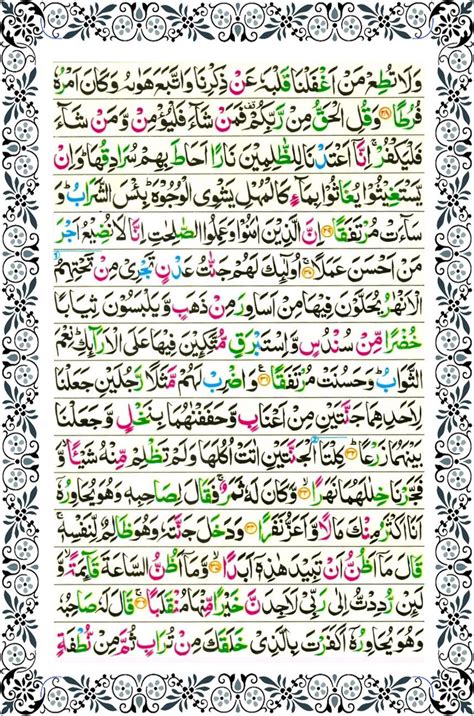 وَلَا تُطِعْ مَنْ اَغْفَلْنَا قَلْبَهٗ عَنْ ذِكْرِنَا وَاتَّبَعَ هَوٰىهُ وَكَانَ اَمْرُهٗ
فُرُطًا ﴿۲۸﴾ وَقُلِ الْحَقُّ مِنْ رَّبِّكُمْ فَمَنْ شَآءَ فَلْيُؤْمِنْ وَّمَنْ شَآءَ
فَلْيَكْفُرْ اِنَّاۤ اَعْتَدْنَا لِلظّٰلِمِيْنَ نَارًا اَحَاطَ بِهِمْ سُرَادِقُهَا وَاِنْ
يَّسْتَغِيْثُوْا يُغَاثُوْا بِمَآءٍ كَالْمُهْلِ يَشْوِى الْوُجُوْهَ بِئْسَ الشَّرَابُ وَ
سَآءَتْ مُرْتَفَقًا ﴿۲۹﴾ اِنَّ الَّذِيْنَ اٰمَنُوْا وَعَمِلُوا الصّٰلِحٰتِ اِنَّا لَا نُضِيْعُ اَجْرَ
مَنْ اَحْسَنَ عَمَلًا ﴿۳۰﴾ اُولٰٓئِكَ لَهُمْ جَنّٰتُ عَدْنٍ تَجْرِىْ مِنْ تَحْتِهِمُ
الْاَنْهٰرُ يُحَلَّوْنَ فِيْهَا مِنْ اَسَاوِرَ مِنْ ذَهَبٍ وَّيَلْبَسُوْنَ ثِيَابًا
خُضْرًا مِّنْ سُنْدُسٍ وَّاِسْتَبْرَقٍ مُّتَّكِـِٕيْنَ فِيْهَا عَلَى الْاَرَآئِكِ نِعْمَ
الثَّوَابُ وَحَسُنَتْ مُرْتَفَقًا ﴿۳۱﴾ وَاضْرِبْ لَهُمْ مَّثَلًا رَّجُلَيْنِ جَعَلْنَا
لِاَحَدِهِمَا جَنَّتَيْنِ مِنْ اَعْنَابٍ وَّحَفَفْنٰهُمَا بِنَخْلٍ وَّجَعَلْنَا
بَيْنَهُمَا زَرْعًا ﴿۳۲﴾ كِلْتَا الْجَنَّتَيْنِ اٰتَتْ اُكُلَهَا وَلَمْ تَظْلِمْ مِّنْهُ شَيْـًٔا وَّ
فَجَّرْنَا خِلٰلَهُمَا نَهَرًا ﴿۳۳﴾ وَّكَانَ لَهٗ ثَمَرٌ فَقَالَ لِصَاحِبِهٖ وَهُوَ يُحَاوِرُهٗۤ
اَنَا اَكْثَرُ مِنْكَ مَالًا وَّاَعَزُّ نَفَرًا ﴿۳۴﴾ وَدَخَلَ جَنَّتَهٗ وَهُوَ ظَالِمٌ لِّنَفْسِهٖ
قَالَ مَاۤ اَظُنُّ اَنْ تَبِيْدَ هٰذِهٖۤ اَبَدًا ﴿۳۵﴾ وَّمَاۤ اَظُنُّ السَّاعَةَ قَآئِمَةً وَّ
لَئِنْ رُّدِدْتُّ اِلٰى رَبِّىْ لَاَجِدَنَّ خَيْرًا مِّنْهَا مُنْقَلَبًا ﴿۳۶﴾ قَالَ لَهٗ صَاحِبُهٗ
وَهُوَ يُحَاوِرُهٗۤ اَكَفَرْتَ بِالَّذِىْ خَلَقَكَ مِنْ تُرَابٍ ثُمَّ مِنْ نُّطْفَةٍ